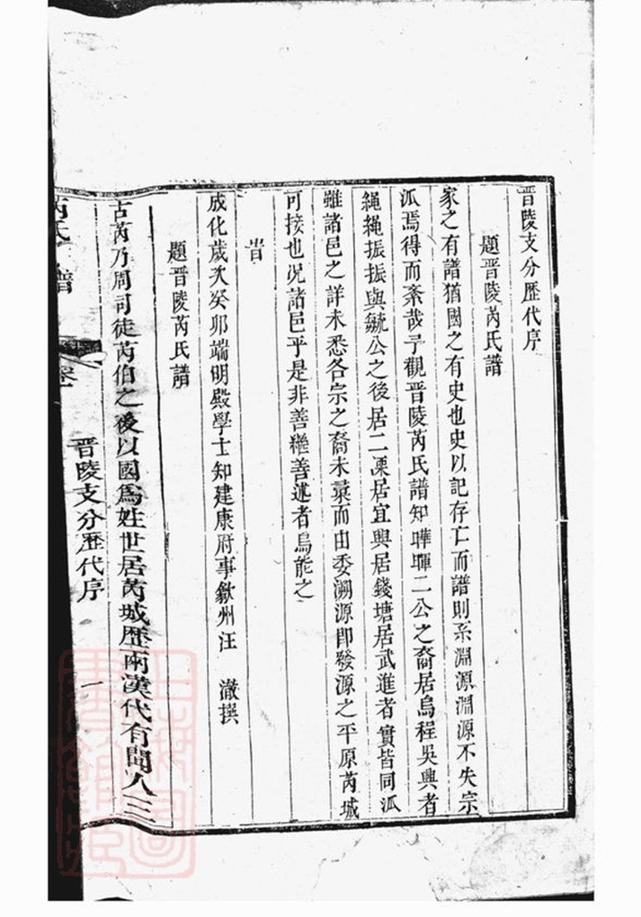 晋陵支分歷代序
題晋陵芮氏譜
家之有譜猶國之有史也史以記存亡而譜則系淵源淵源不失宗
瓜焉得而紊哉予觀晋陵芮氏譜知曄暉二公之裔居烏程吳興者
繩繩振振與毓公之後居二溧居宜興居錢塘居武進者實皆同瓜
雖諸邑之詳未悉各宗之裔未彙而由委溯源即發源之平原芮城
可接也况諸邑乎是非善繼善述者烏能之
旹
成化歲次癸卯端明殿學士知建康府事歙州汪 澈撰
題晋陵芮氏譜
古芮乃周司徒芮伯之後以國爲姓世居芮城歷兩漢代有聞人三
芮氏 譜
卷
晋陵支分歷代序
一